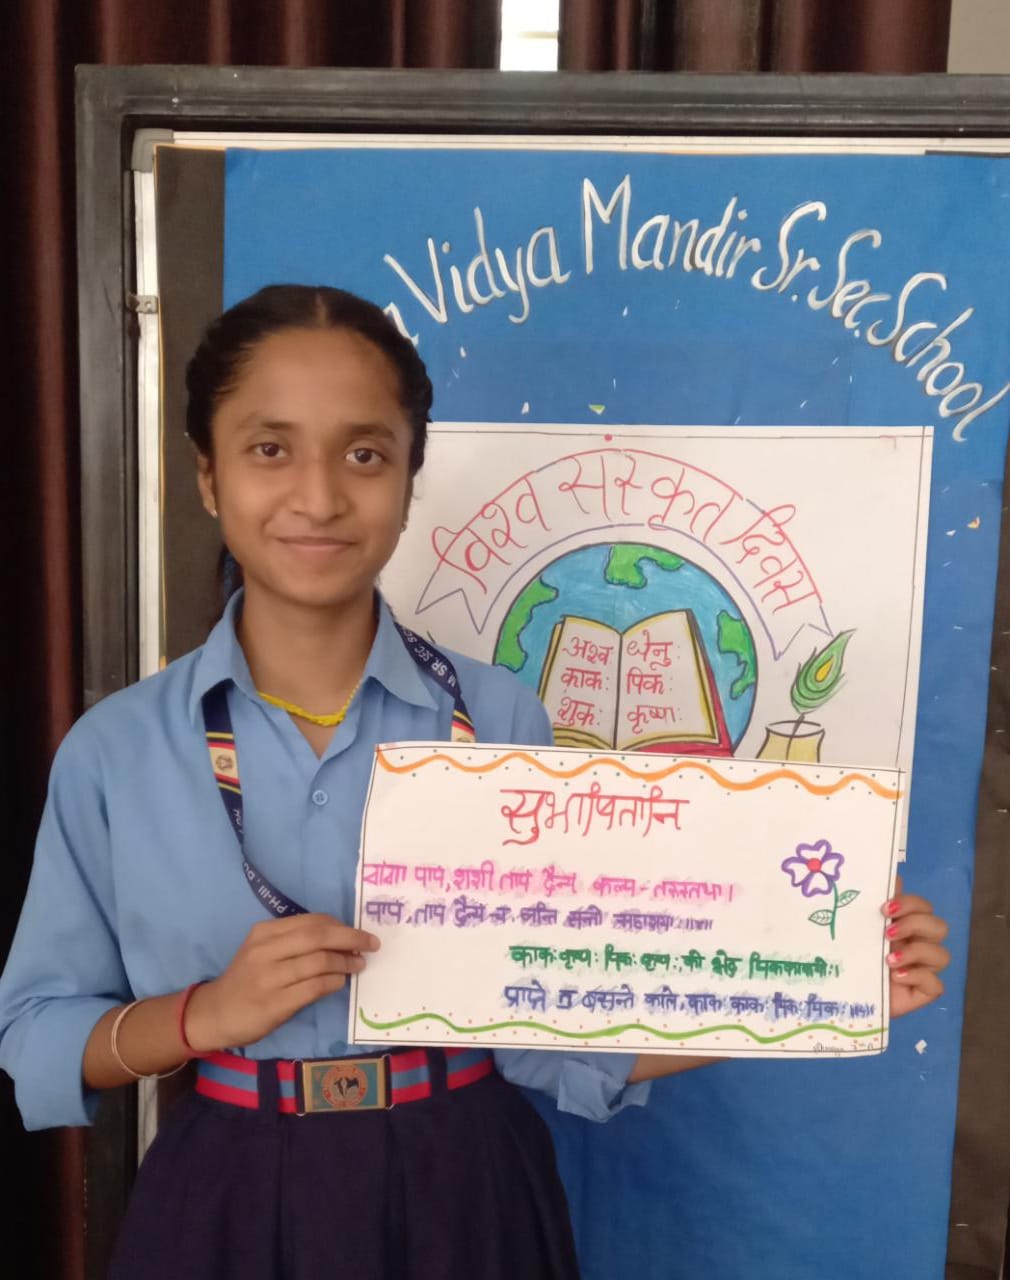 Vidya Mandir Sr. Sec. School
विश्व संस्कृत दिवस
अश्वः धेनुः
काकः पिकः
शुकः कृष्णः
सुभाषितानि
गंगा पापं, शशी तापं दैन्यं कल्प-तरुस्तथा।
पापं, तापं दैन्यं च, सन्तो
काकः कृष्णः पिकः कृष्णः, को भेद पिककाकयोः।
प्राप्ते तु बसन्ते काले, काकः काकः पिकः पिकः
SR. SEC. SC
PH-III, DU